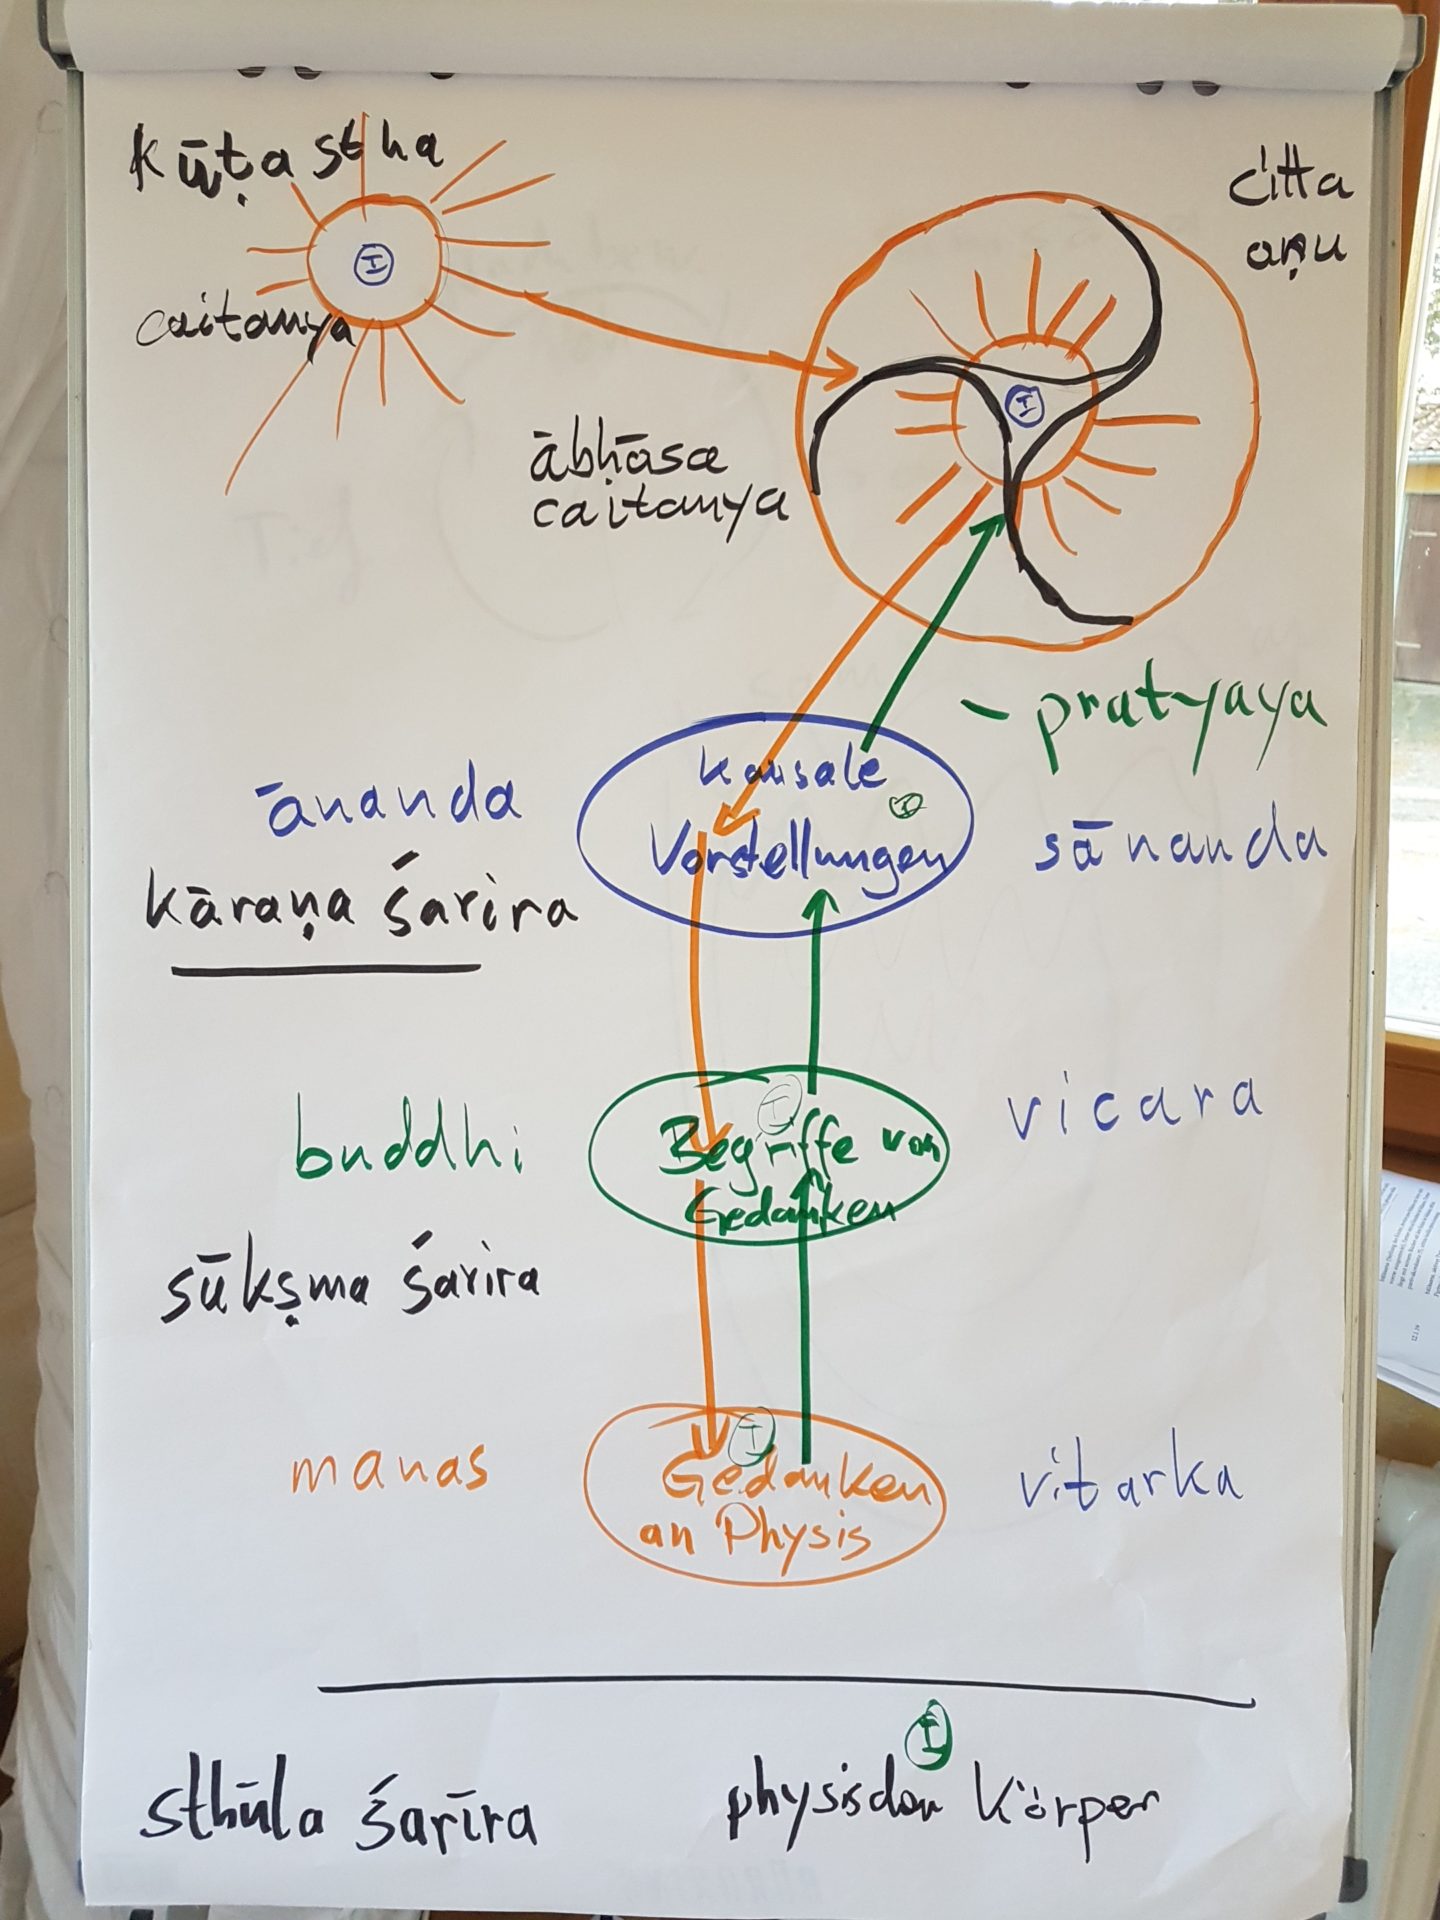 kūṭastha
I
caitanya
citta
aṇu
I
ābḥāsa
caitanya
- pratyaya
ānanda
kausale
I
Vorstellungen
sānanda
kāraṇa śarira
I
buddhi
Begriffe von
Gedanken
vicara
sūkṣma śarira
I
manas
Gedanken
an Physis
vitarka
I
sthūla śarīra
physischer Körper